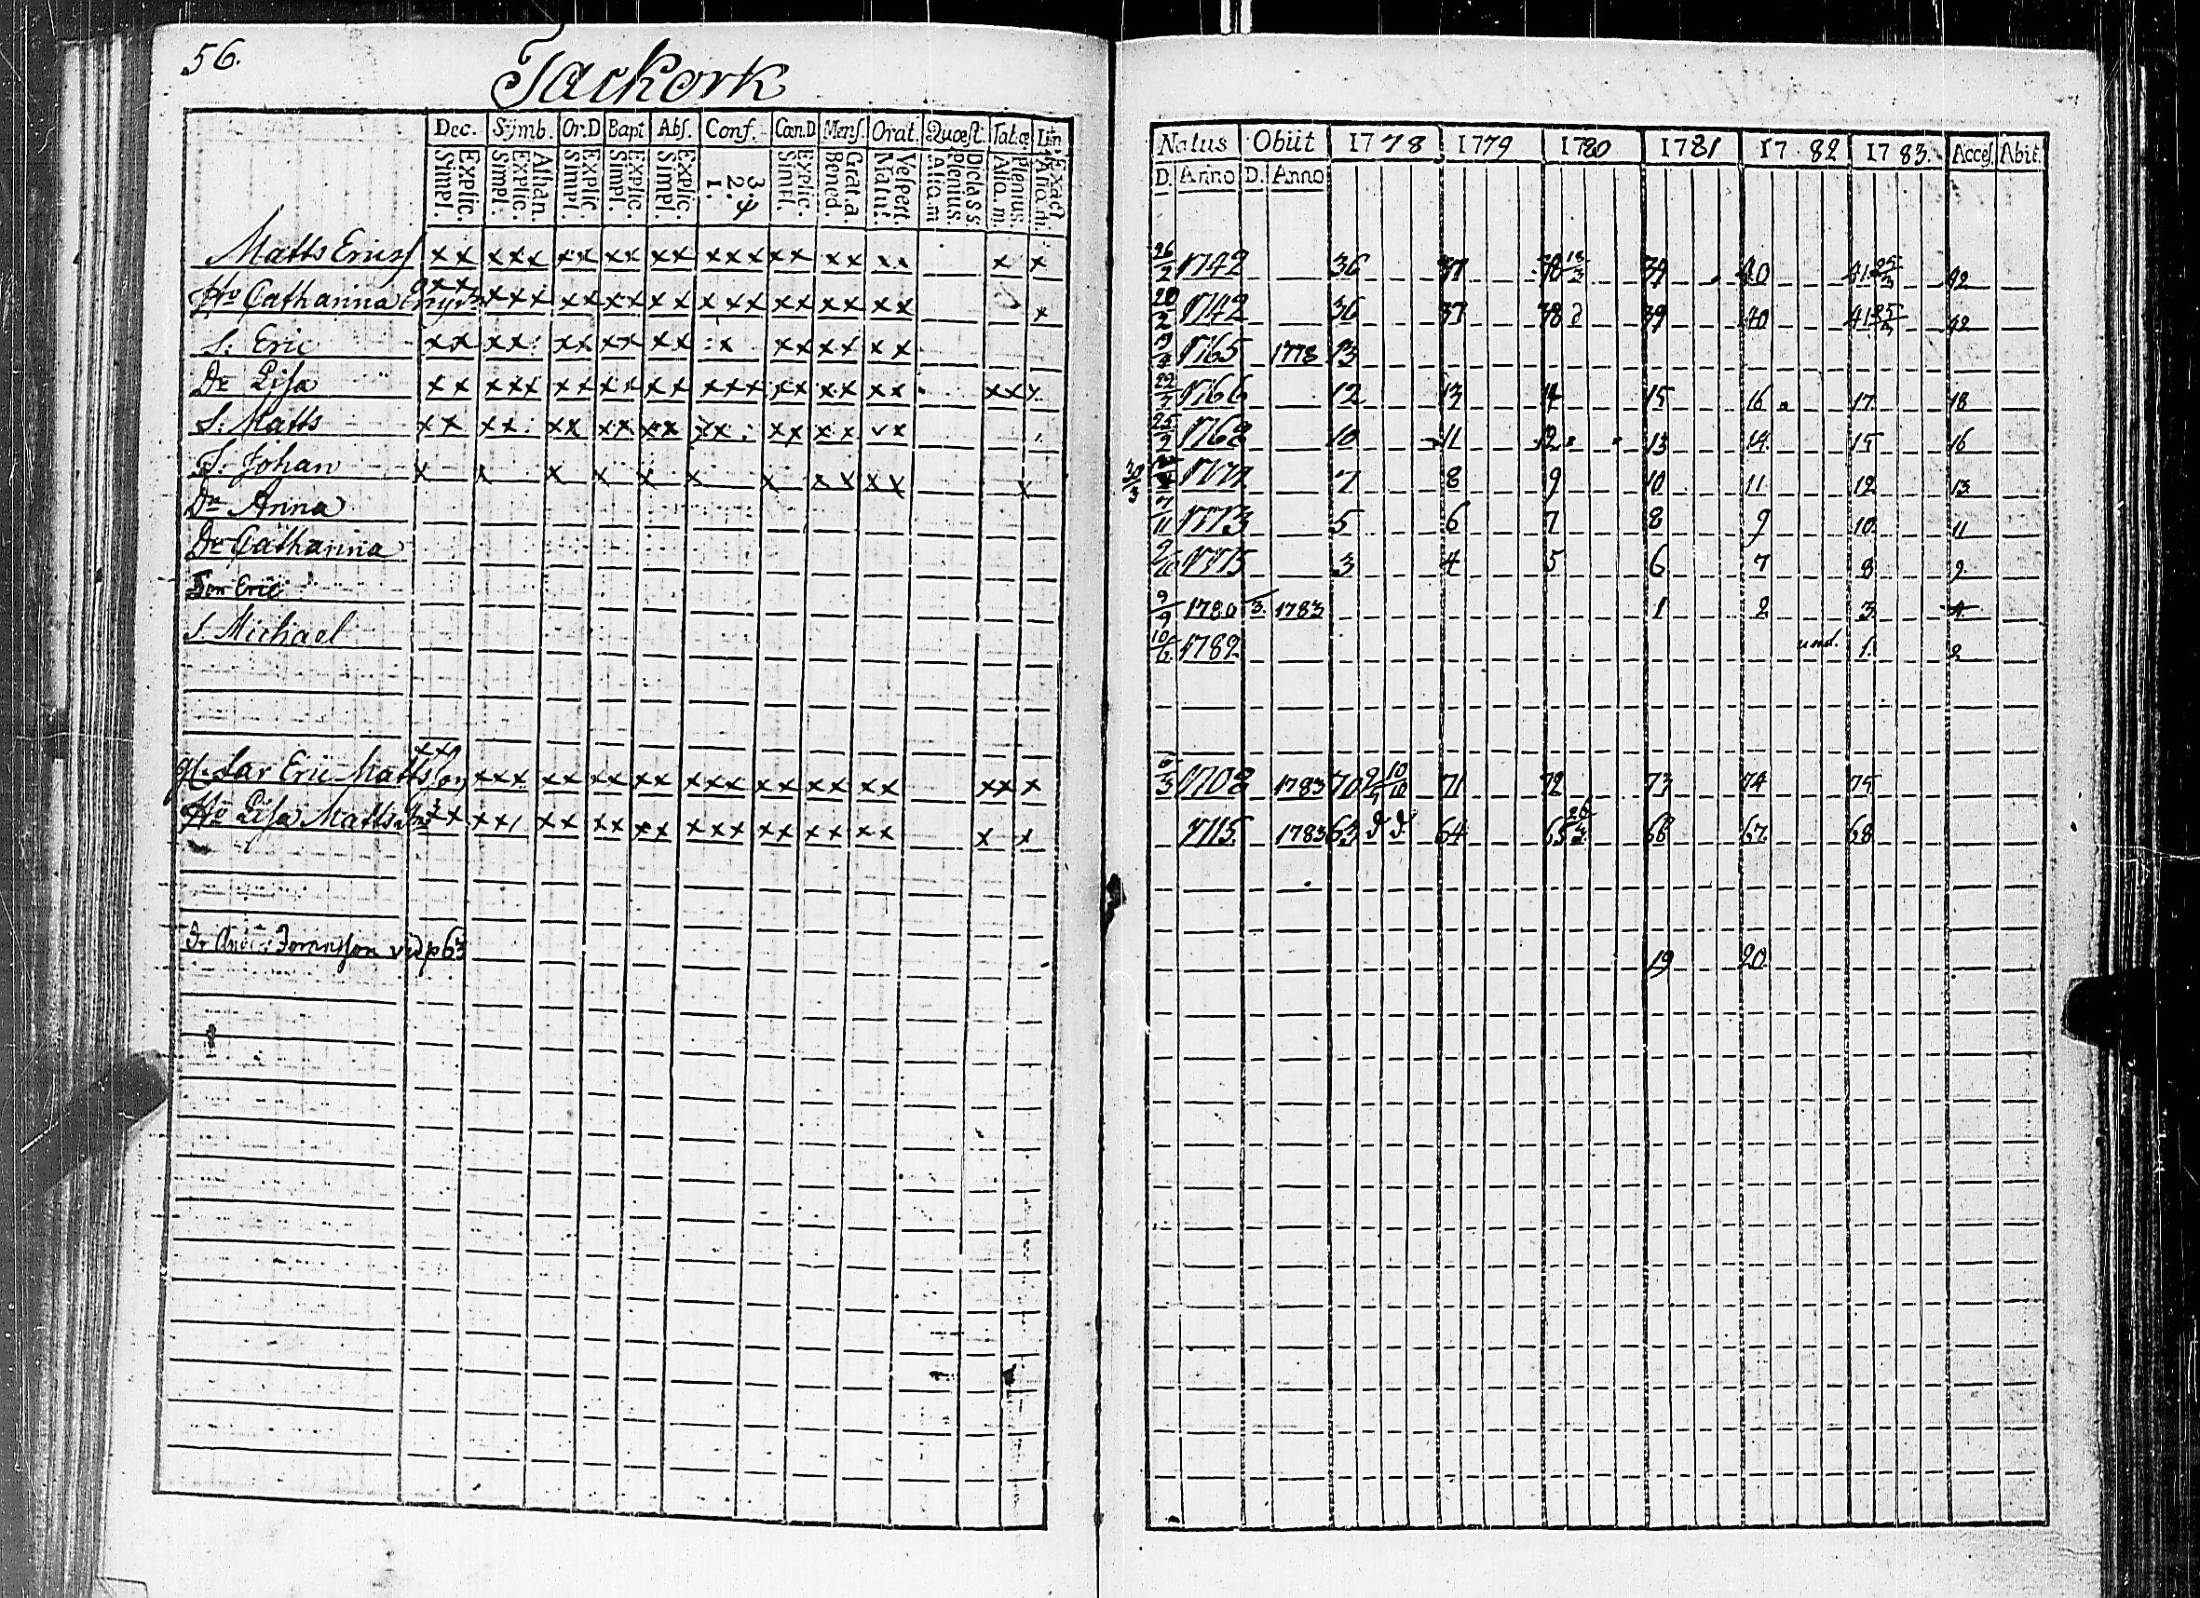 56.
Jackork
Dec. Symb. Or.D Bapt Abs. Conf. Cœn.D Mens. Orat. Quæst. Tab.œ
Explic. Simpl. Athan. Explic. Simpl. Explic. Simpl. Explic. Simpl. Explic. Simpl. 3. 4 2. 1. Explic. Simpl. Grat.a Bened. Vespert. Matut. Diclass. Plenius. Aſta.m Plenius. Aſta.m Exact
Natus Obiit 1778 1779 1780 1781 1782 1783. Acces. Abit.
D. Anno D. Anno
Matts Ericss x x x x x x x x x x x x x x x x x x x x x 26/2 1742 36 37 38 18/3 39 40 41 25/3 42
Hu Catharina x x x x x x x x x x x x x x x x x x x x 1742 36 37 38 39 40 41 25/3 42
S. Eric x x x x x x x x x x x x x x x x x 1765 1778 13
Dr Lisa x x x x x x x x x x x x x x x x x x x x x x 1766 12 13 14 15 16 17 18
S. Matts x x x x x x x x x x x x x x x x x 25/9 1768 10 11 12 13 14 15 16
S. Johan x x x x x x x x x x x x 1771 7 8 9 10 11 12 13
Dr Anna 7/11 1773 5 6 7 8 9 10 11
Dr Catharina 1775 3 4 5 6 7 8 9
Son Eric 9/9 1780 3. 1783 1 2 3 4
S. Michael 10/6 1782 und. 1. 2
gl. far Eric Mattsson x x x x x x x x x x x x x x x x x x x x x x x 1708 1783 70 71 72 73 74 75
Hu Lisa Mattsdr x x x x x x x x x x x x x x x x x x x 1715 1783 63 64 65 66 67 68
vid p 63 19 20